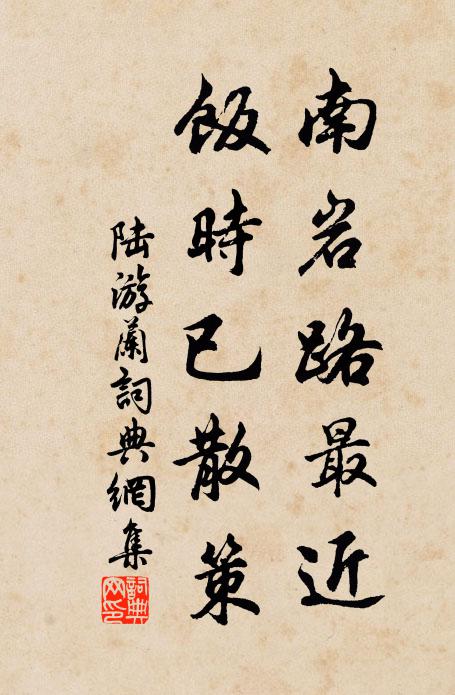 南岩路最近
飯時已散策
陆游蘭詞典網集
詞典